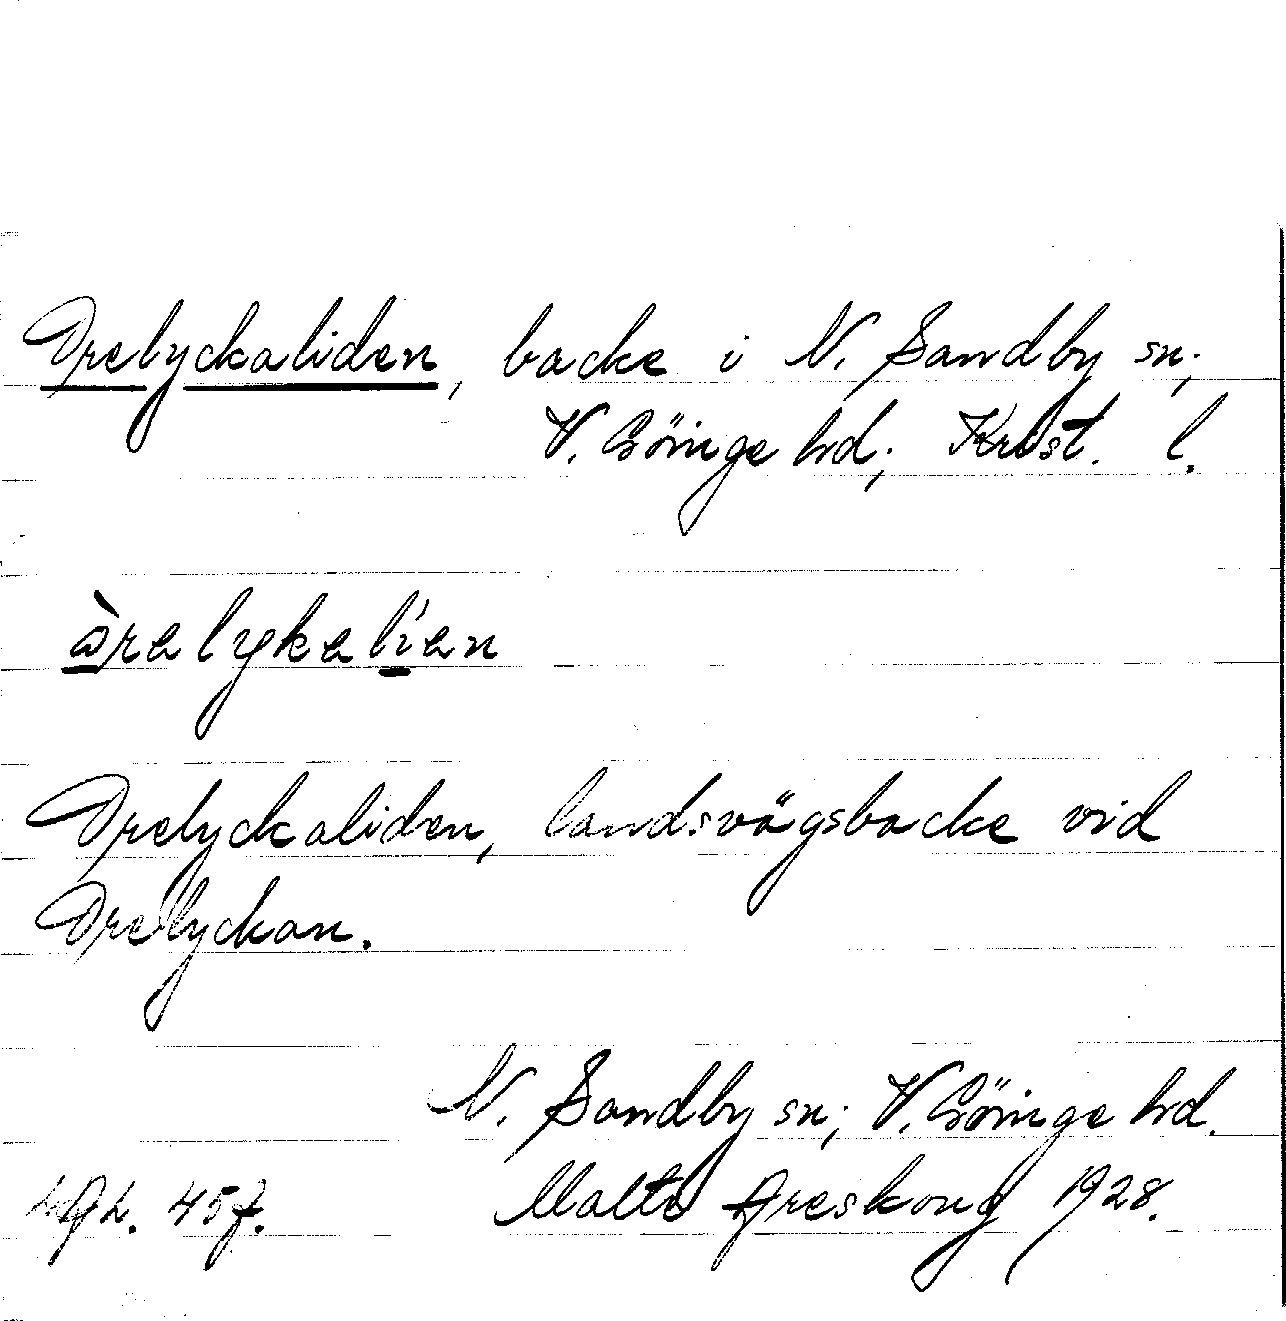 Orelyckaliden, backe i N. Sandby sn;
V. Göinge hd; Krist. l.
òrəlykəlíən
Orelyckaliden, landsvägsbacke vid
Orelyckan.
N. Sandby sn; V. Göinge hd.
457.
Malte Areskoug 1928.